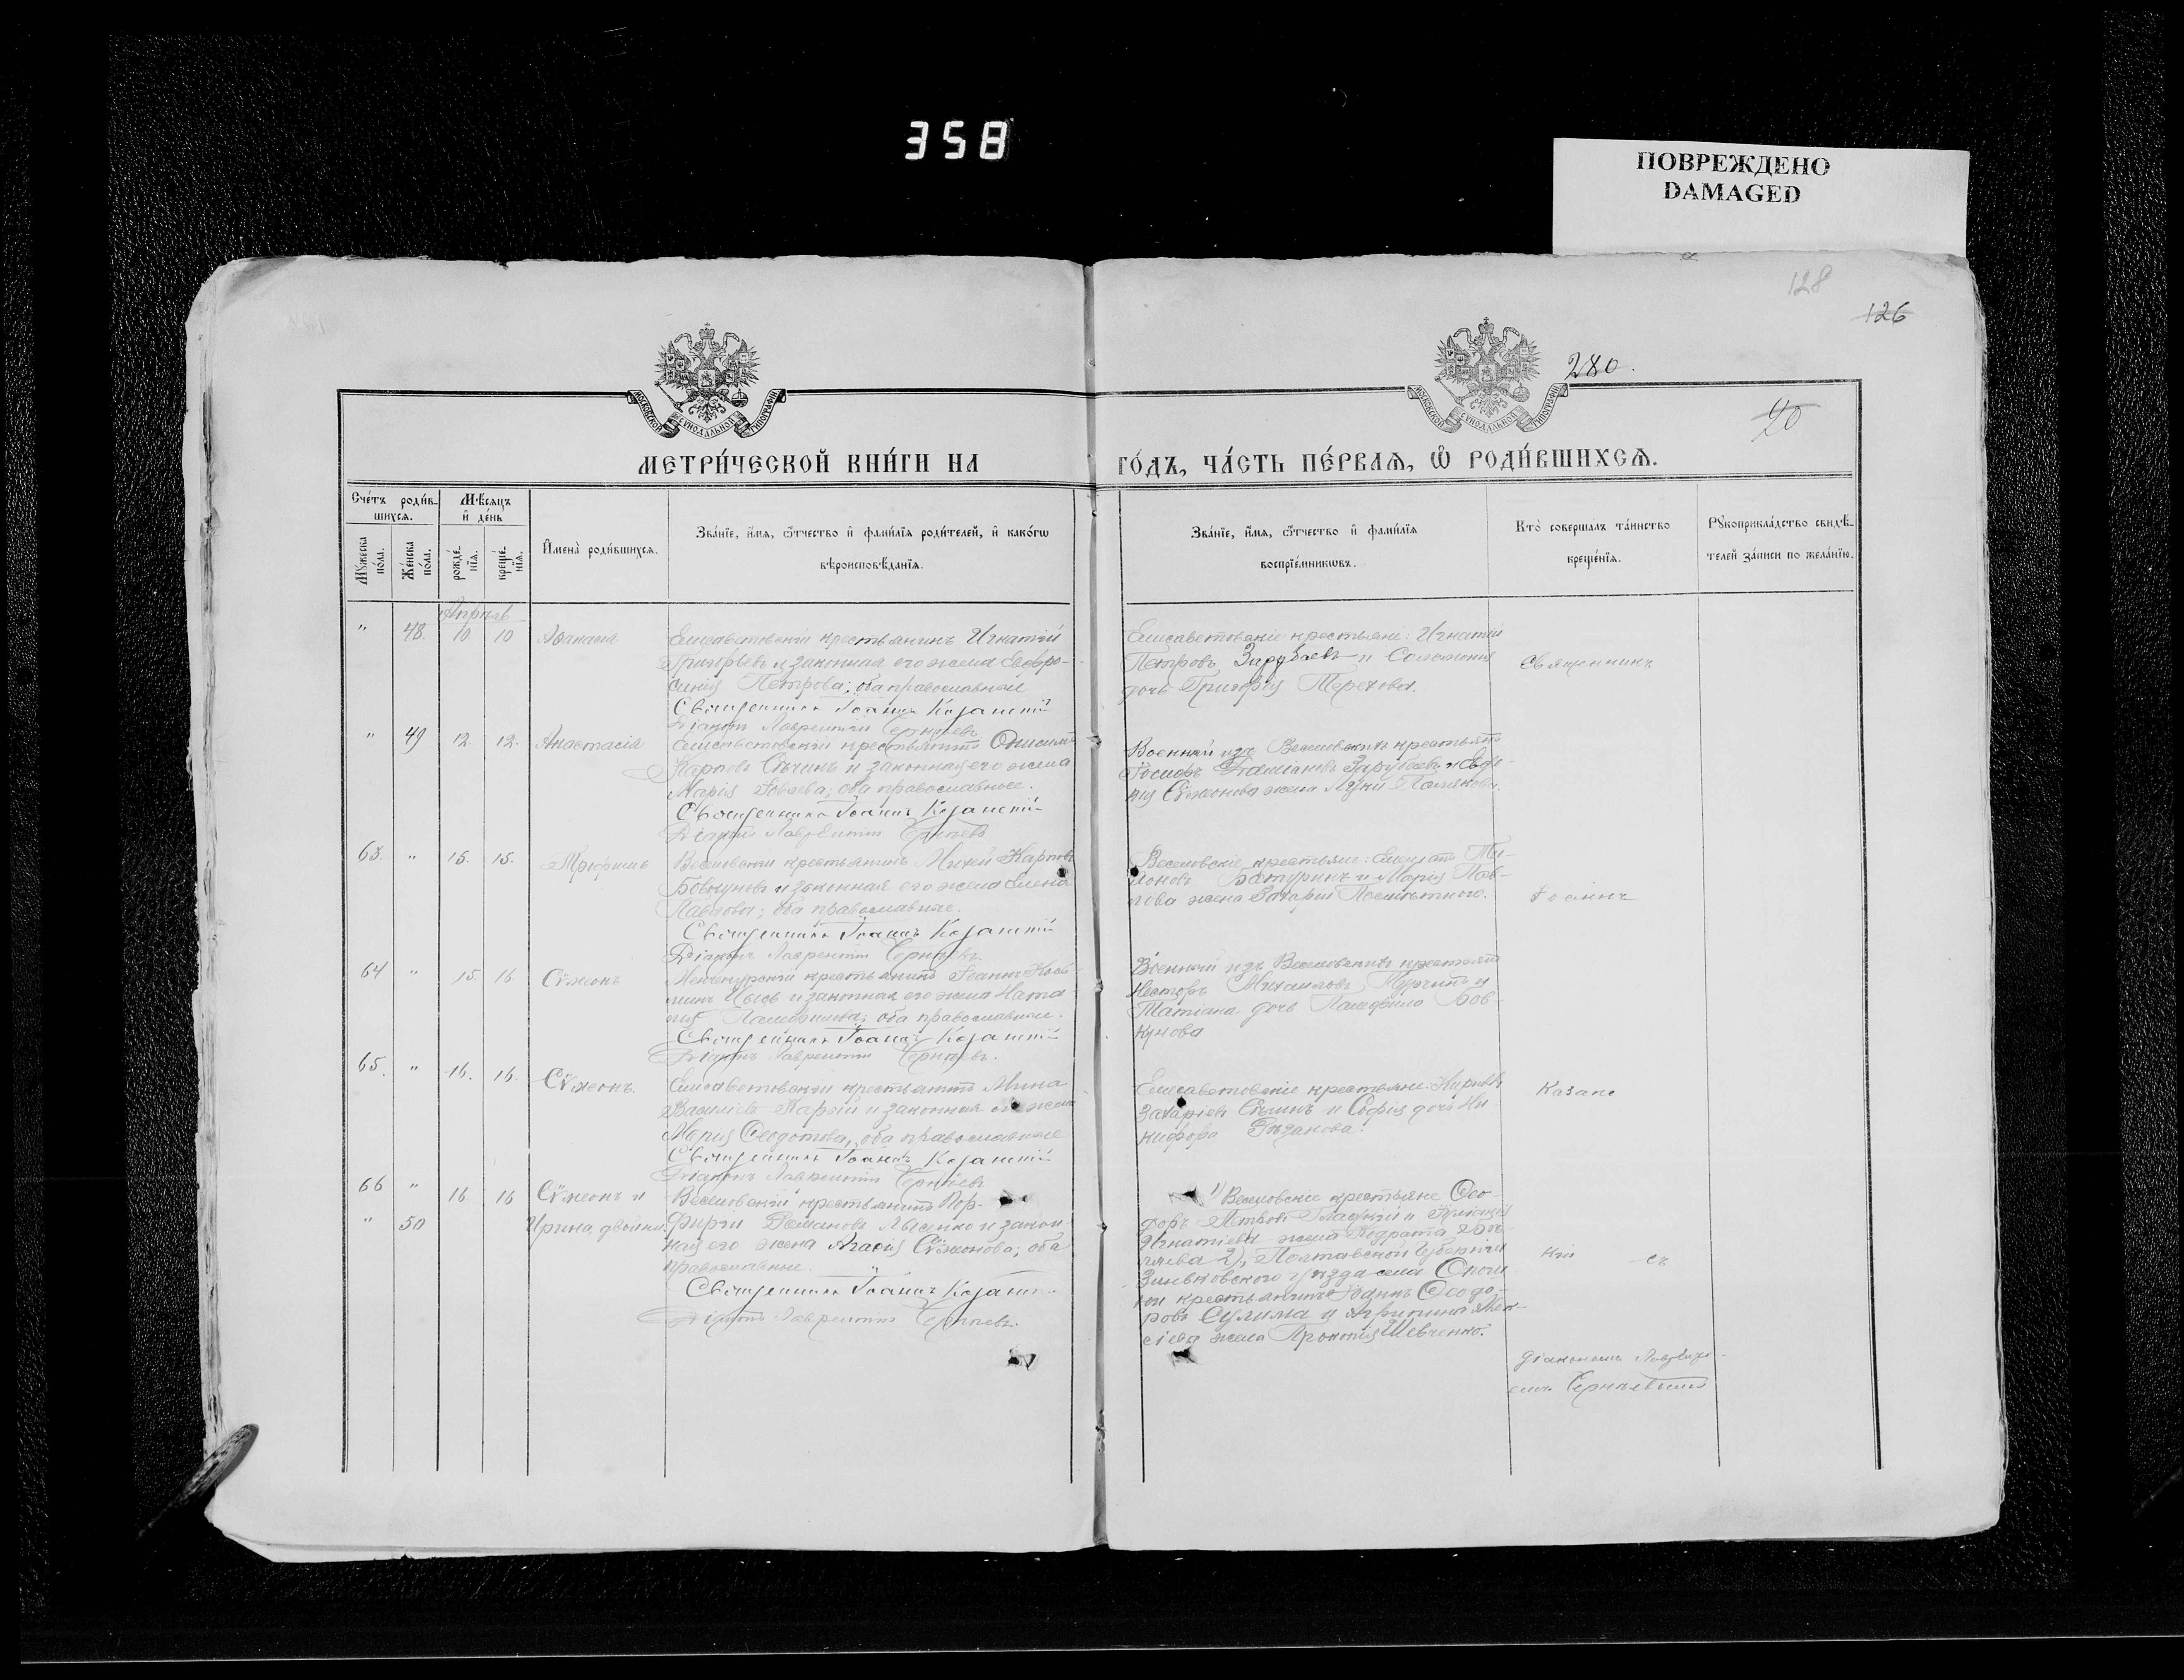 358
ПОВРЕЖДЕНО
DAMAGED
128
126
280.
40
МОСКОВСКОЙ СѴНОДАЛЬНОЙ ТИПОГРАФІИ
МОСКОВСКОЙ СѴНОДАЛЬНОЙ ТИПОГРАФІИ
МЕТРИ́ЧЕСКОЙ КНИ́ГИ НА ГО́ДЪ, ЧА́СТЬ ПЕ́РВАЯ, Ѡ҆ РОДИ́ВШИХСѦ.
Сче́тъ роди́в-
шихсѧ.
Мꙋ́жеска по́ла.
Же́нска по́ла.
Мѣ́сяцъ
и҆ де́нь
рожде́-
нїѧ.
креще́-
нїѧ.
И҆мена̀ роди́вшихсѧ.
Зва́нїе, и҆́мѧ, ѻ҆́тчество и҆ фами́лїѧ роди́телей, и҆ како́гѡ
вѣроисповѣ́данїѧ.
Зва́нїе, и҆́мѧ, ѻ҆́тчество и҆ фами́лїѧ
воспрїе́мникѡвъ.
Кто̀ соверша́лъ та́инство
креще́нїѧ.
Рꙋкоприкла́дство свидѣ́-
телей за́писи по жела́нїю.
Апрѣль
" 48. 10 10 Аѳанасія
Елисаветовскій крестьянинъ Игнатій
Григорьевъ и законная его жена Евфро-
синія Петрова; оба православные
Священникъ Іоаннъ Казанскій
Діаконъ Лаврентій Чернѣевъ
Елисаветовскіе крестьяне: Игнатій
Петровъ Зарубаевъ и Соломонія
дочь Григорія Терехова.
Священникъ
" 49 12. 12. Анастасія
Елисаветовскій крестьянинъ Онисимъ
Карповъ Сѣчинъ и законная его жена
Марія Іовлева; оба православные.
Священникъ Іоаннъ Казанскій
Діаконъ Лаврентій Чернѣевъ
Военный изъ Веселовскихъ крестьянъ
Іосифъ Даміановъ Зарубаевъ и Евдо-
кія Сѵмеонова жена Луки Полякова.
63. " 15. 15. Трифонъ
Веселовскій крестьянинъ Михей Карповъ
Бовкуновъ и законная его жена Елена
Павлова; оба православные.
Священникъ Іоаннъ Казанскій
Діаконъ Лаврентій Чернѣевъ.
Веселовскіе крестьяне:
Батуринъ и Марія Пав-
лова жена Захарія
Іоаннъ
64 " 15. 16. Сѵмеонъ
крестьянинъ Іоаннъ
Цысь и законная его жена Ната
лія Памфилова; оба православные.
Священникъ Іоаннъ Казанскій
Діаконъ Лаврентій Чернѣевъ.
Военный изъ Веселовскихъ крестьянъ
Несторъ Михаиловъ и
Татіана дочь Памфила Бов-
кунова
65. " 16. 16. Сѵмеонъ.
Елисаветовскій крестьянинъ Мина
и законная его жена
Марія Ѳеодотова, оба православные
Священникъ Іоаннъ Казанскій
Діаконъ Лаврентій Чернѣевъ
Елисаветовскіе крестьяне: Кириллъ
Захаріевъ Сѣчинъ и Софія дочь Ни-
кифора Рѣзанова.
Казанс
66 " 16. 16 Сѵмеонъ и
" 50 Ирина, двойни.
Веселовскій крестьянинъ Пор-
фирій Романовъ Лысенко и закон-
ная его жена Агаѳія Сѵмеонова; оба
православные.
Священникъ Іоаннъ Казанс
Діаконъ Лаврентій Чернѣевъ.
1) Веселовскіе крестьяне Ѳео-
доръ Петровъ и
Игнатіева жена Кодрата
2), Полтавской Губерніи
Зиньковского уѣзда села Опош
ни крестьянинъ Іоаннъ Ѳеодо-
ровъ Сулима и Агрипина Алек-
сіева жена Прокопія Шевченко.
кій съ
діакономъ Лаврент-
емъ Чернѣевымъ